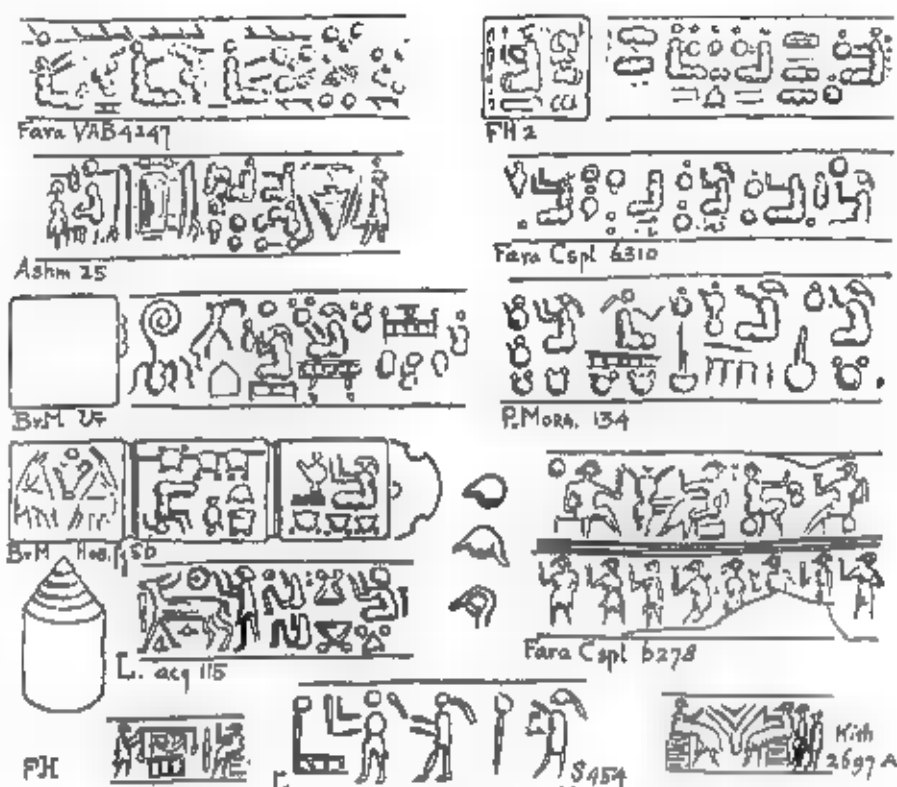 Fara VAB 4247
FH 2
Ashm 25
Fara Cspl 6310
BrM
P.MORG. 134
BrM
L. acq 115
Fara Cspl 6278
FH
S 454
Kith
2697 A